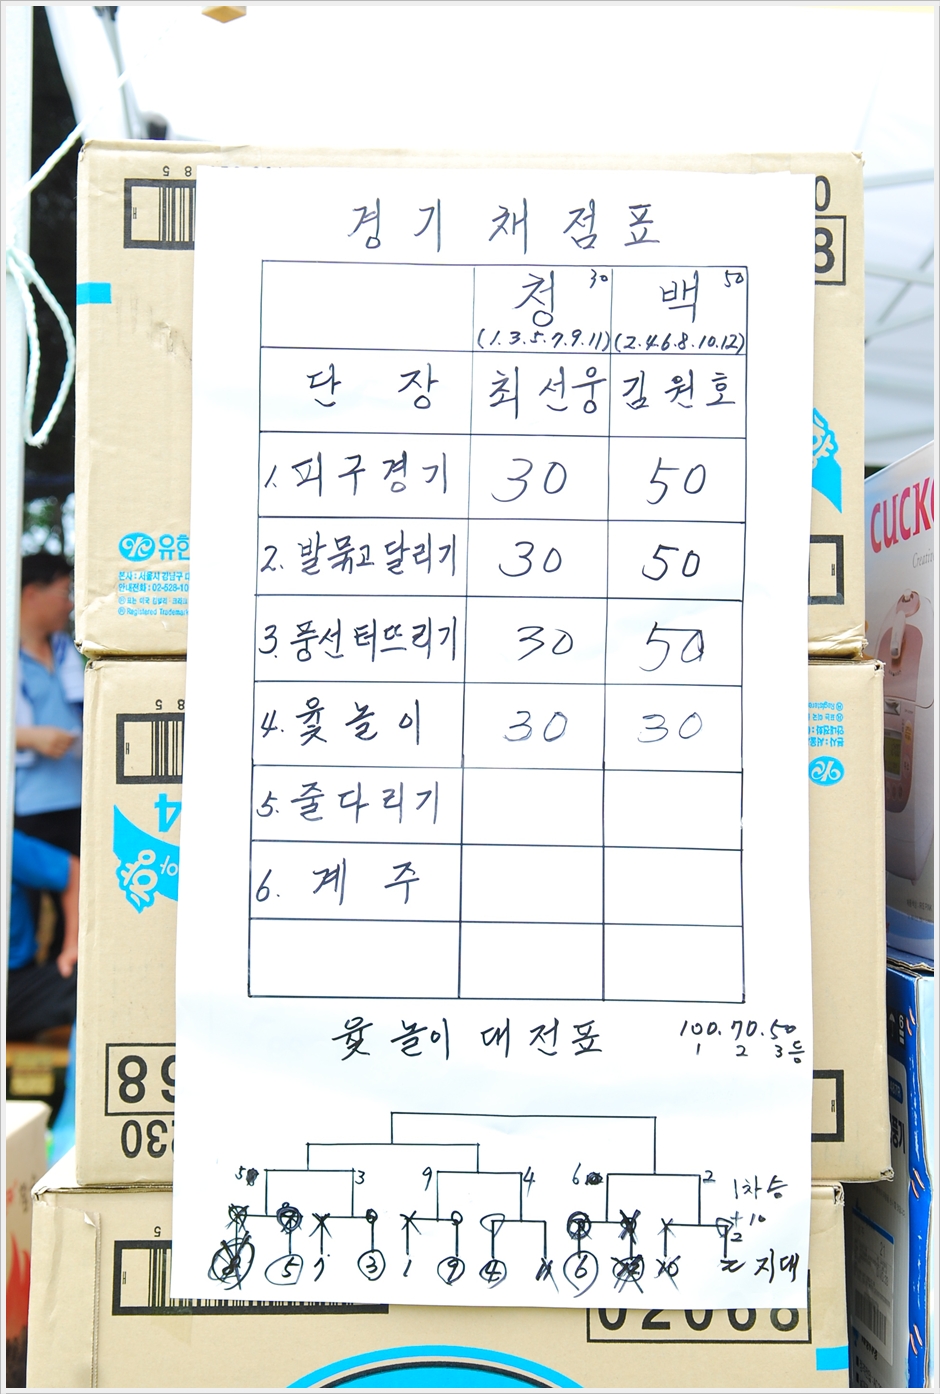 경기 채점표
청 30 백 50
(1.3.5.7.9.11) (2.4.6.8.10.12)
단장 최선웅 김원호
1. 피구경기 30 50
2. 발묶고달리기 30 50
3. 풍선터뜨리기 30 50
4. 윷놀이 30 30
5. 줄다리기
6. 계주
윷놀이 대전표
100. 70. 50
1 2 3등
5 3 9 4 6 2
1차승
+10
5 7 3 1 9 4 11 6 12 10 2 지대
유한
본사 : 서울시 강남구
안내전화 : 02-528-10
Registered Trademark
CUCKO
Creative
02068